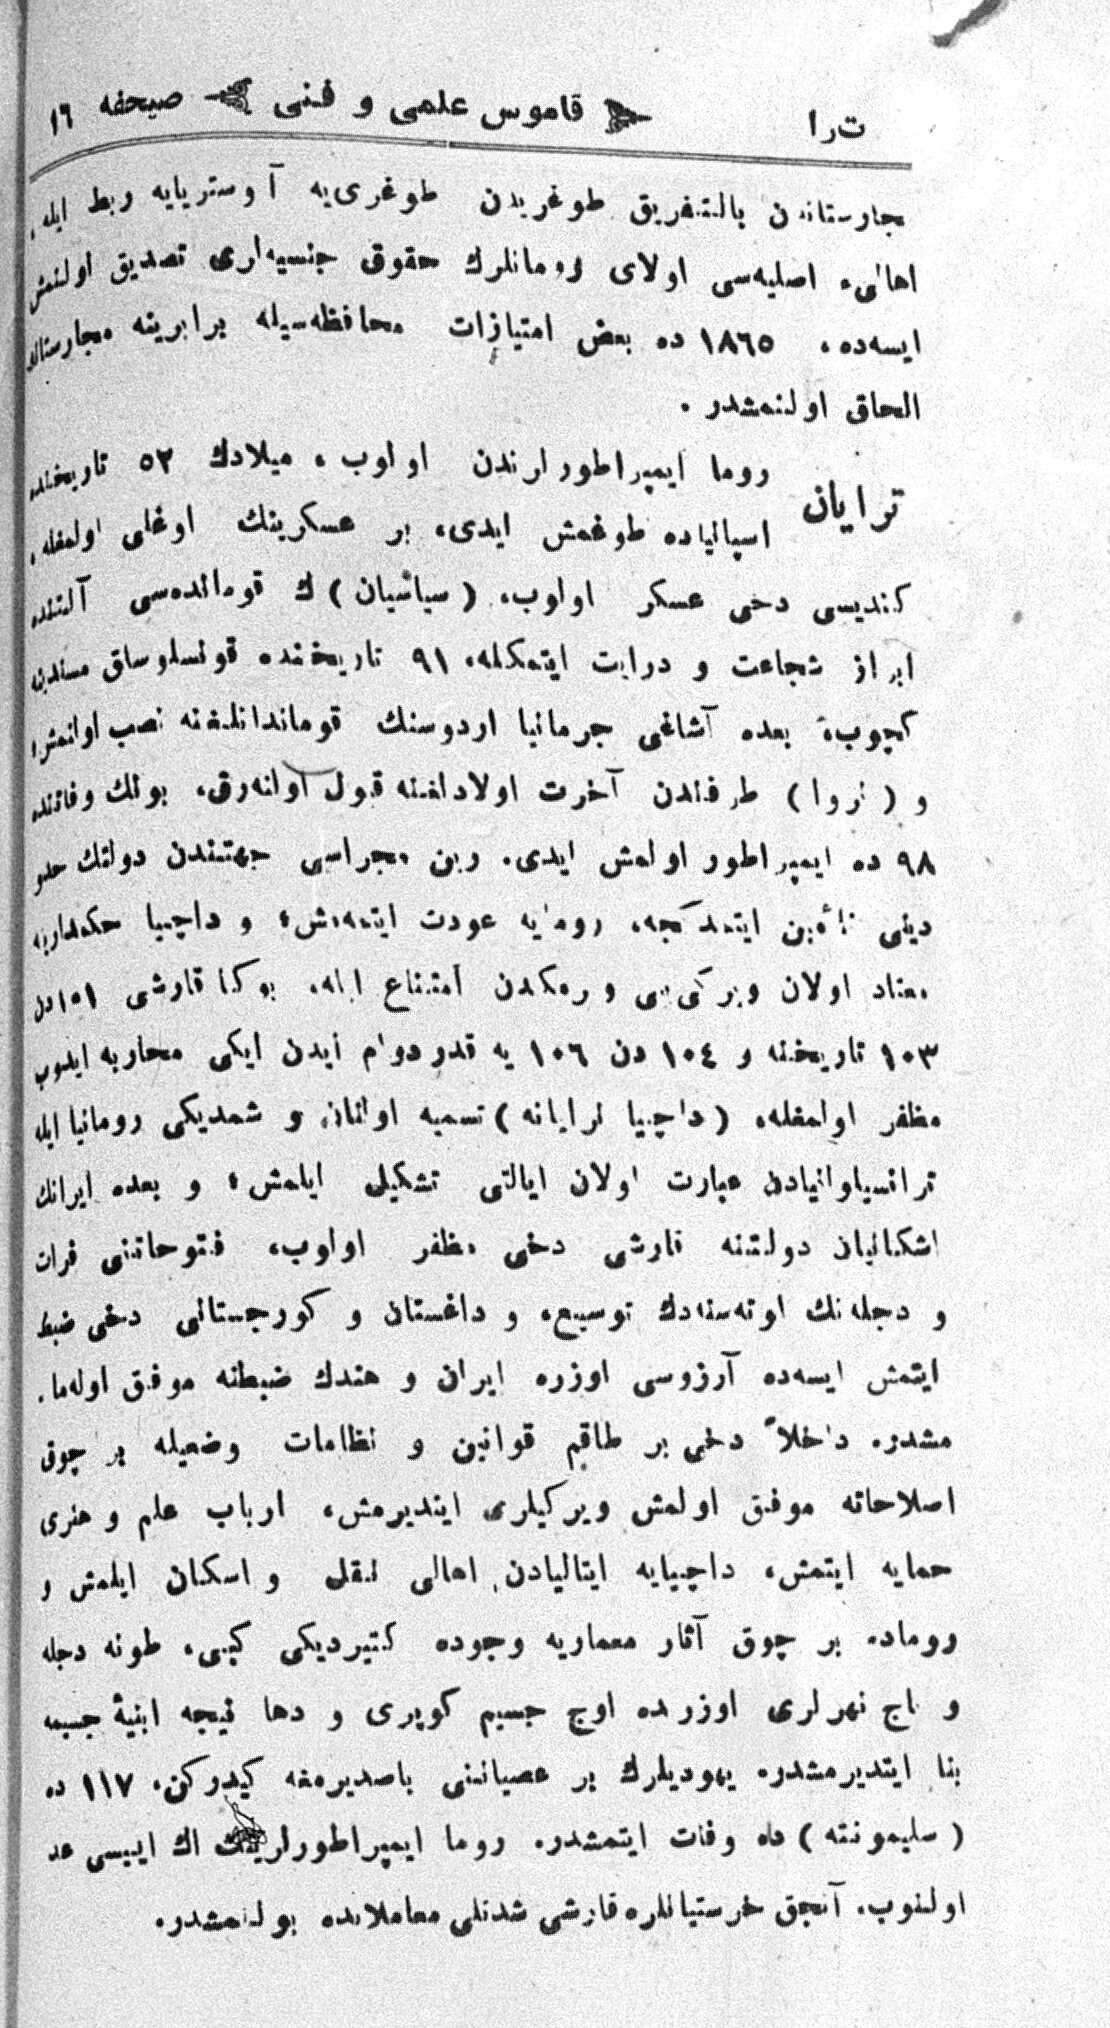 ت‌را قاموس علمی و فنی صحیفه ١٦
مجارستاندن بالتفریق طوغریدن طوغری‌یه آوستریایه ربط ایله،
اهالیء اصلیه‌سی اولای رومانلرك حقوق جنسیه‌لری تصدیق اولنمش
ایسه‌ده، ١٨٦٥ ده بعض امتیازات محافظه‌سیله برابرینه مجارستانه
الحاق اولنمشدر.
ترایان روما ایمپراطورلرندن اولوب، میلادك ٥٢ تاریخنده
اسپانیاده طوغمش ایدی، بر عسکرینك اوغلی اولمغله،
کندیسی دخی عسکر اولوب، ك قوماندەسی آلتنده
ابراز شجاعت و درایت ایتمکله، ٩١ تاریخنده قونسلوسلق مسندینه
کچوب، بعده آشاغی جرمانیا اردوسنك قوماندانلغنه نصب اولنمش،
و (نروا) طرفندن آخرت اولادلغنه قبول اولنه‌رق، بونك وفاتنده
٩٨ ده ایمپراطور اولمش ایدی. رین مجراسی جهتندن دولتك حدو
دینی تأمین ایتدکجه، رومایه عودت ایتمەمش، و داچیا حکمدارینه
معتاد اولان ویرکی‌یی ویرمکدن امتناع ایله، بوکا قارشی ١٠١ دن
١٠٣ تاریخنه و ١٠٤ دن ١٠٦ یه قدر دوام ایدن ایکی محاربه ایدوب
مظفر اولمغله، (داچیا ترایانه) تسمیه اولنان و شمدیکی رومانیا ایله
ترانسیلوانیادن عبارت اولان ایالتی تشکیل ایلمش، و بعده ایرانك
اشکانیان دولتنه قارشی دخی مظفر اولوب، فتوحاتنی فرات
و دجله‌نك اوته‌سنه‌دك توسیع، و داغستان و کورجستانی دخی ضبط
ایتمش ایسه‌ده آرزوسی اوزره ایران و هندك ضبطنه موفق اوله‌ما.
مشدر. داخلاً دخی بر طاقم قوانین و نظامات وضعیله بر چوق
اصلاحاته موفق اولمش ویرکیلری ایندیرمش، ارباب علم و هنری
حمایه ایتمش، داچیایه ایتالیادن اهالی نقل و اسکان ایلمش و
روماده بر چوق آثار معماریه وجوده کتیردیکی کبی، طونه دجله
و تاج نهرلری اوزرده اوچ جسیم کوپری و دها نیجه ابنیۀ جسیمه
بنا ایتدیرمشدر. یهودیلرك بر عصیاننی باصدیرمغه کیدرکن، ١١٧ ده
(سلیمونته) ده وفات ایتمشدر. روما ایمپراطورلرینك اك اییسی عد
اولنوب، آنجق خرستیانلره قارشی شدتلی معاملاتده بولنمشدر.